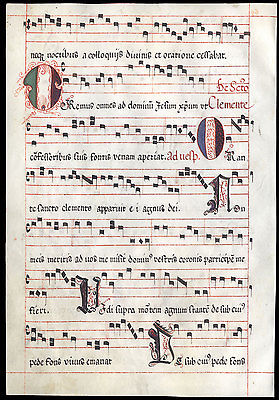 neqz noctibus a colloquijs divinis et oratione cessabat.
De Scto
Oremus omnes ad dominū Jesum xp̄um vt Clemente
confessoribus suis fontis venam aperiat. Ad vesp. Oran
te sancto clemente apparuit ei agnus dei. Non
meis meritis ad vos me misit dominꝰ vestris coronis participem me
fieri. Vidi supra mōtem agnum stantē de sub cuiꝰ
pede fons vivus emanat De sub cuiꝰ pede fons